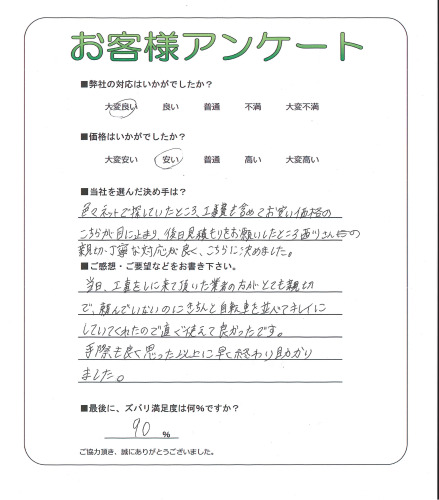 お客様アンケート
■弊社の対応はいかがでしたか？
大変良い 良い 普通 不満 大変不満
■価格はいかがでしたか？
大変安い 安い 普通 高い 大変高い
■当社を選んだ決め手は？
色々ネットで探していたところ、工事費も含めてお安い価格の
こちらが目に止まり、後日見積もりをお願いしたところ西川さんの
親切・丁寧な対応が良く、こちらに決めました。
■ご感想・ご要望などをお書き下さい。
当日、工事をしに来て頂いた業者の方がとても親切
で、頼んでいないのにきちんと自転車を並べてキレイに
していてくれたので直ぐ使えて良かったです。
手際も良く思った以上に早く終わり助かり
ました。
■最後に、ズバリ満足度は何％ですか？
90 ％
ご協力頂き、誠にありがとうございました。